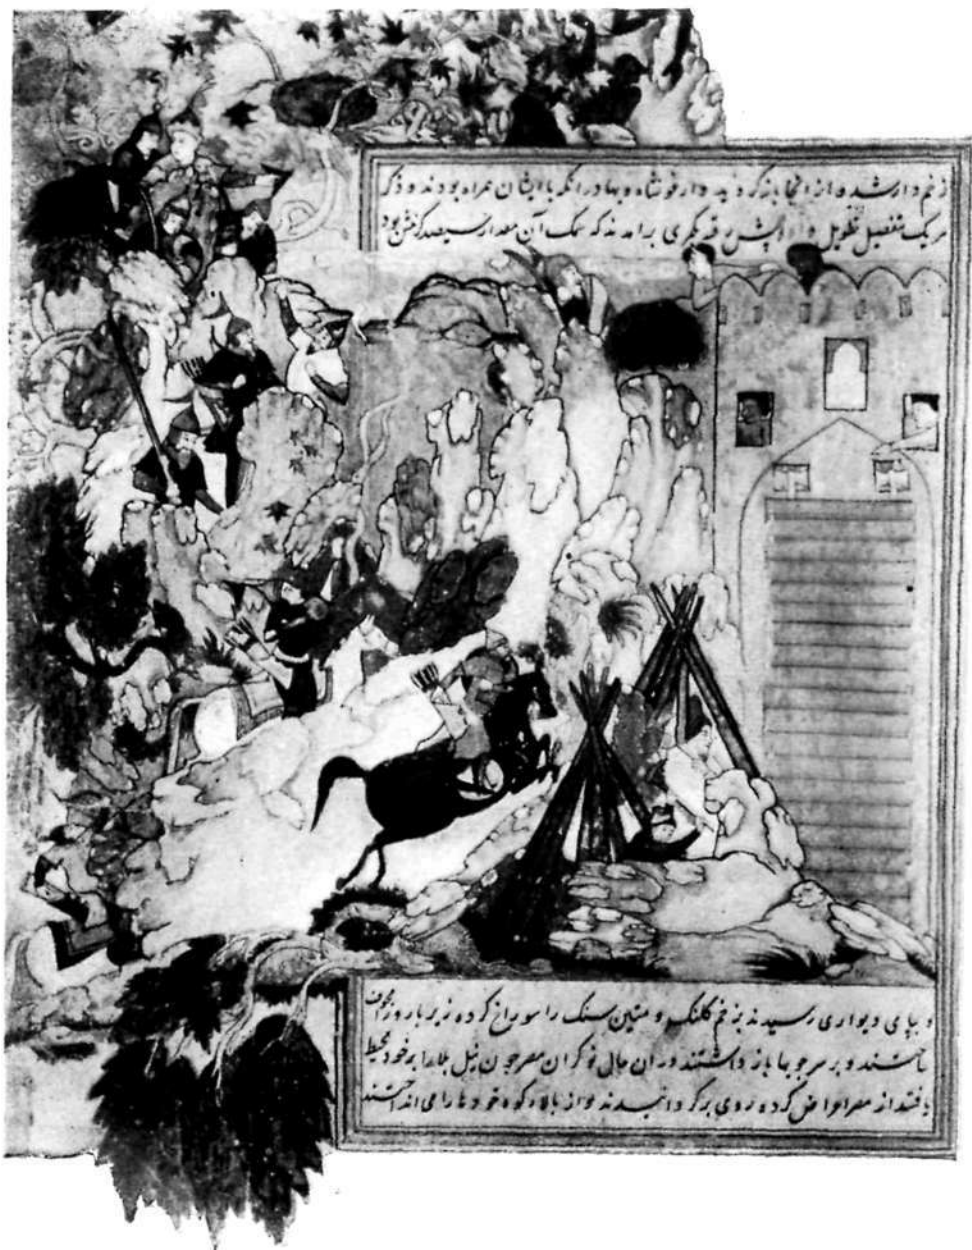 زخم دار شده از انجا باز کردند پدوار فونشاه و بهادرانکه با ایشان همراه بودند و ذکر
هریک بتفصیل تطویل دارد پیش رفته بکمری برامدند که سمک آن مقدار سیصد کز متن بود
و بپای دیواری رسیدند بزخم کلنک و متین سنک را سوراخ کرده زیر بارو
ساختند و بر سر چوبها باز داشتند در ان حال نوکران مصر چون نیل بلا را بر خود محیط
یافتند از مصر اعراض کرده روی برکردانیدند و از بالاء کوه خود را می انداختند